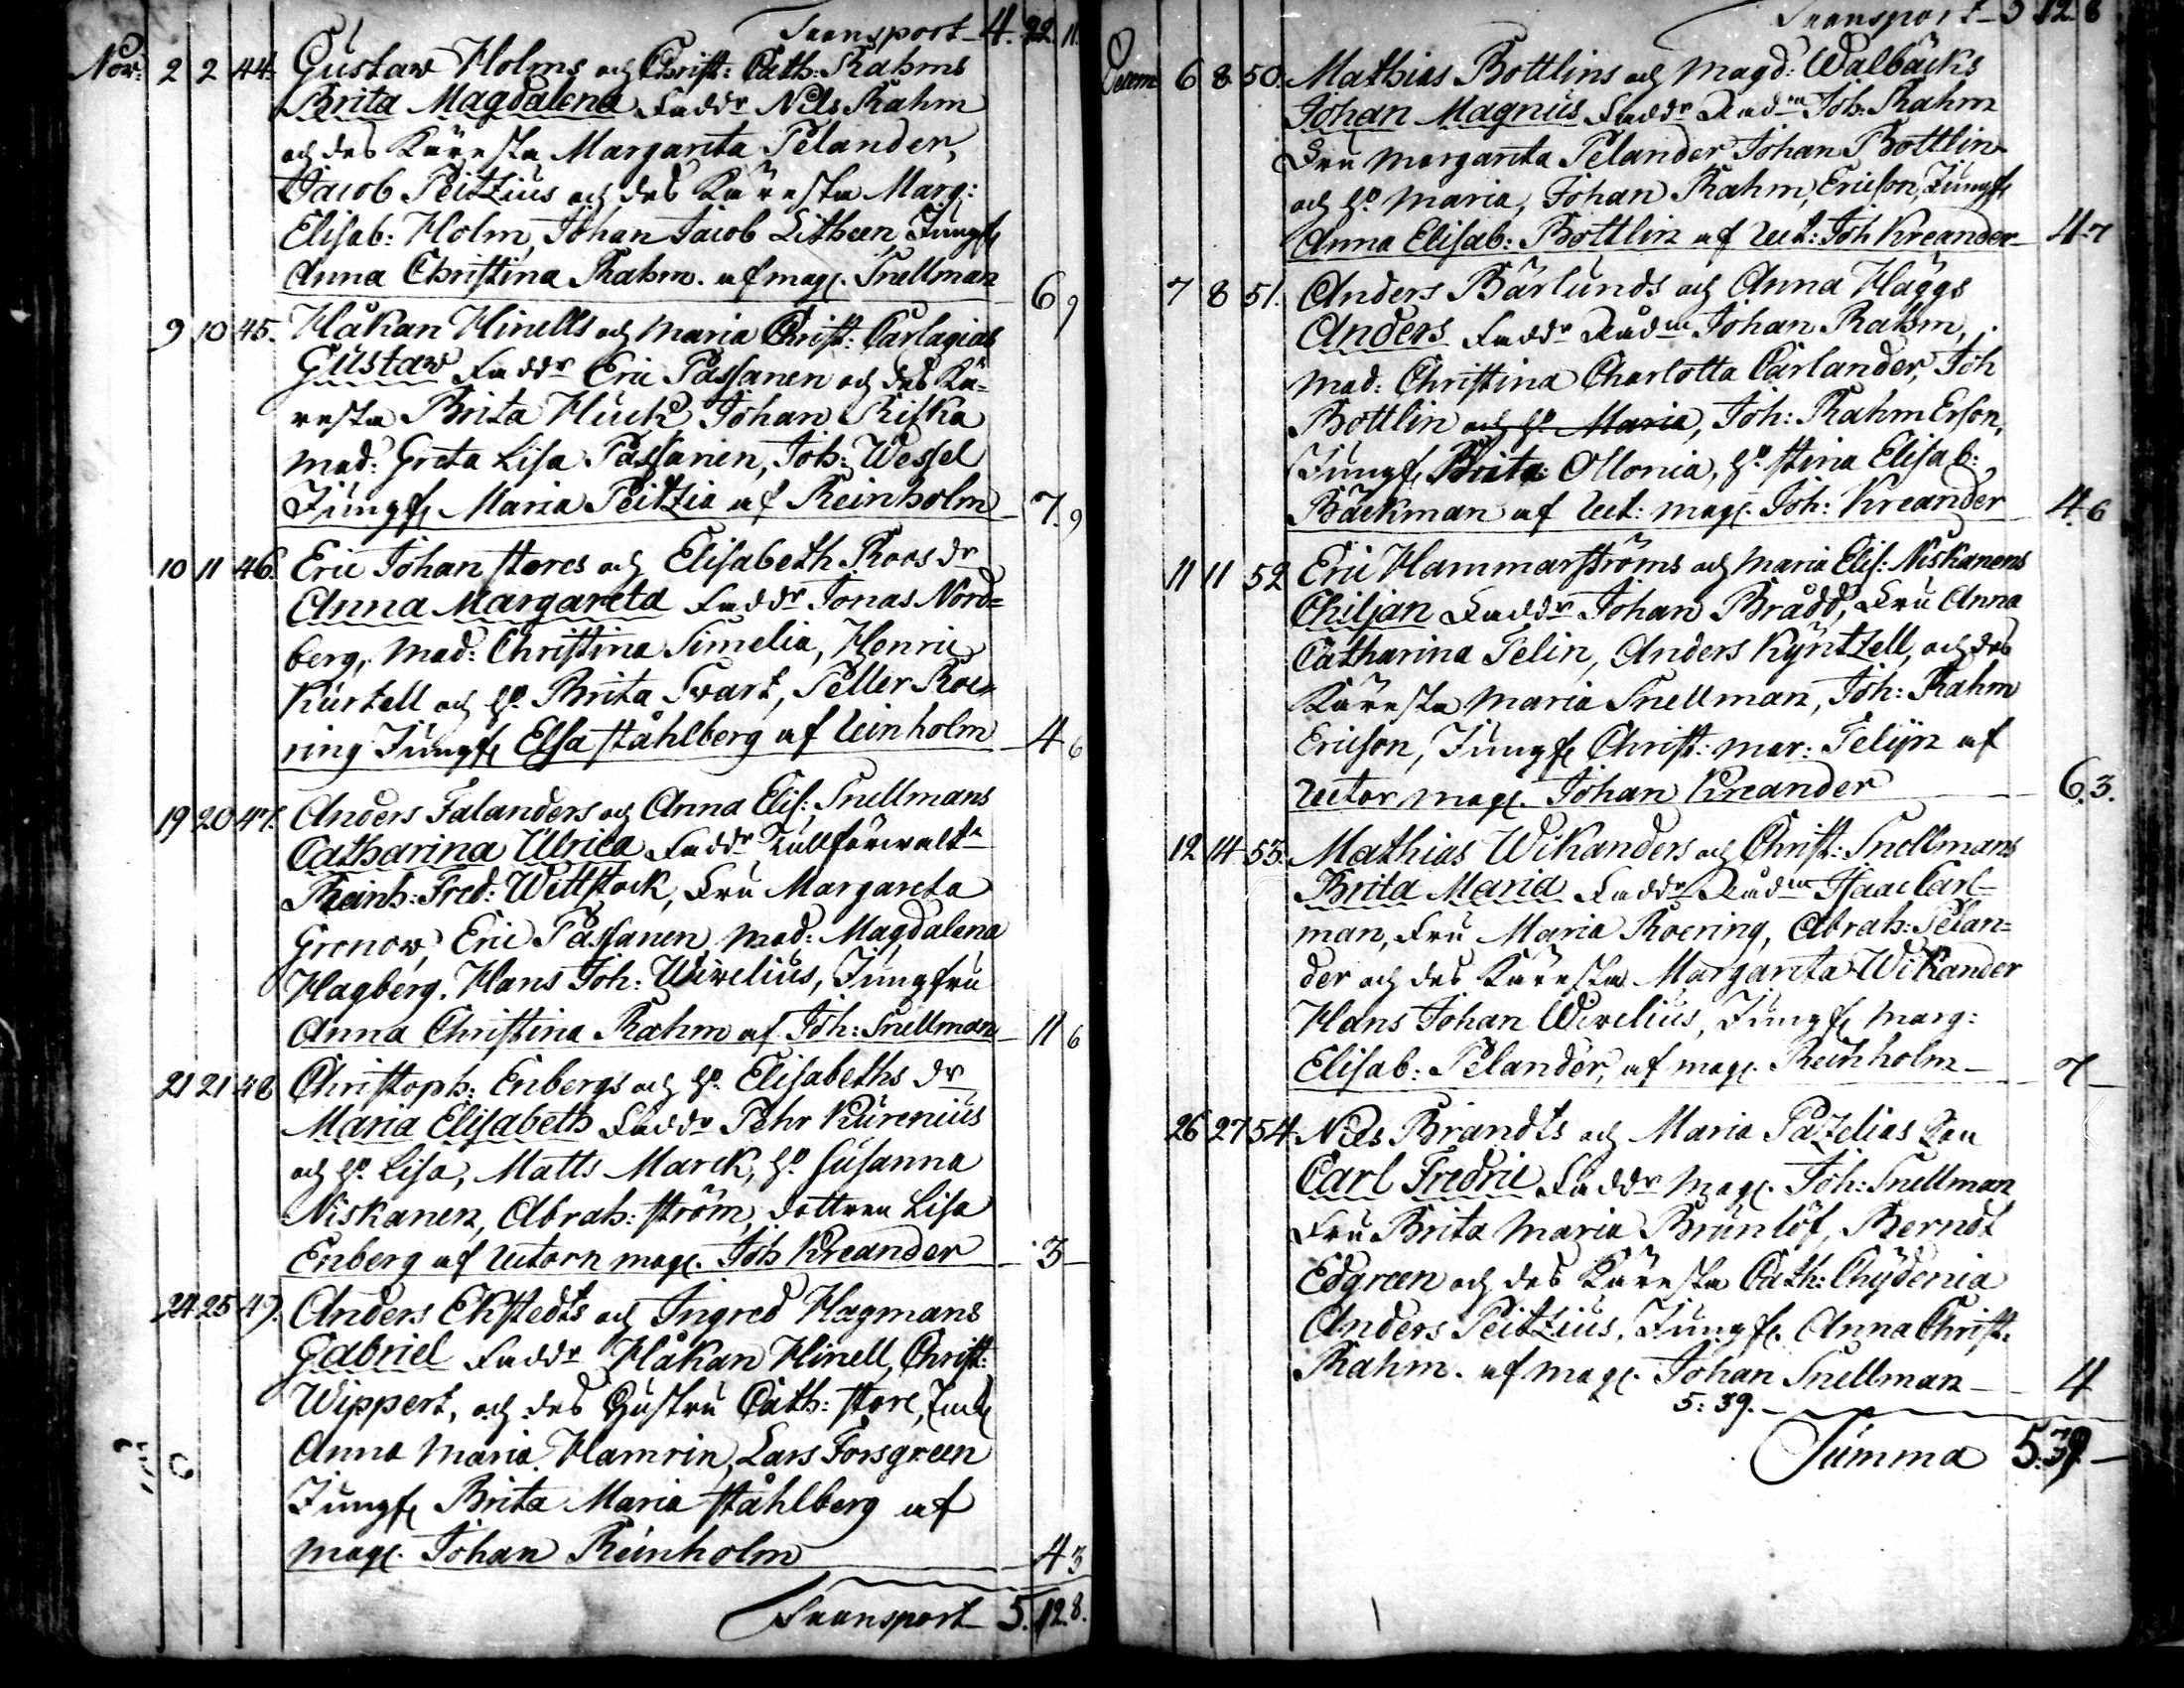 Transport 4. 22. 11.
Nov: 2 2 44. Gustaw Holms och Christ: Cath: Rahms
Brita Magdalena Faddr Nils Rahm
och des Käresta Margareta Pelander,
Jacob Peitzius och des Käresta Marg:
Elisab: Holm, Johan Jacob Litheen Jungf
Anna Christina Rahm. af mag. Snellman 6 9
9 10 45. Håkan Hinells och Maria Christ: Carlagias
Gustaw Faddr Eric Passanen och des Kä=
resta Brita Huck Johan Riska
Mad: Greta Lisa Passanen, Joh: Wessel
Jungf Maria Peitzia af Reinholm 7. 9
10 11 46. Eric Johan stores och Elisabeth Roos dr
Anna Margareta Faddr Jonas Nord=
berg, Mad: Christina Simelia, Henric
Kurtell och h: Brita Svart, Petter Roe
ring Jungf Elsa ståhlberg af Reinholm 4 6
19 20 47. Anders Falanders och Anna Elis: Snellmans
Catharina Ulrica Faddr Tullförwalt
Reinh: Fred: Wettstock, Fru Margareta
Gronow, Eric Passanen, Mad: Magdalena
Hagberg. Hans Joh: Wirelius, Jungfru
Anna Christina Rahm af Joh: Snellman 11 6
21 21 48 Christoph: Enbergs och h: Elisabeths dr
Maria Elisabeth Faddr Pehr Kurenius
och h: Lisa, Matts Marck, h: Susanna
Niskanen, Abrah: ström, dottren Lisa
Enberg af Rectorn mag. Joh Kreander 3
24 25 49. Anders Ekstedts och Ingred Hagmans
Gabriel Faddr Håkan Hinell, Christ:
Wippert, och des Hustru Cath: store,
Anna Maria Hamrin, Lars Forsgreen
Jungf Brita Maria ståhlberg af
mag. Johan Reinholm 4 3
Transport 5. 12. 8.
Transport 5 12. 8
Decem 6 8 50. Mathias Bottlins och Magd: Walbäcks
Johan Magnus Faddr Rådm Joh: Rahm
Fru Margareta Pelander Johan Bottlin
och h: Maria, Johan Rahm, Ericson, Jungf
Anna Elisab: Bottlin af Rect: Joh Kreander 4. 7
7 8 51. Anders Bärlunds och Anna Häggs
Anders Faddr Rådm Johan Rahm,
Mad: Christina Charlotta Carlander, Joh
Bottlin och h: Maria, Joh: Rahm Erson,
Jungf Brita Ollonia, h: stina Elisab:
Bäckman af Rect: mag. Joh: Kreander 4. 6
11 11 52 Eric Hammarströms och Maria Elis: Niskanens
Chiljan Faddr Johan Brådd, Fru Anna
Catharina Telin, Anders Kyntzell, och des
Käresta Maria Snellman, Joh: Rahm
Ericson, Jungf Christ: mar: Telijn af
Rector mag. Johan Kreander 6. 3.
12 14 53. Mathias Wikanders och Christ: Snellmans
Brita Maria Faddr Rådm Isaac Carl=
man, Fru Maria Roering, Abrah: Pelan=
der och des Käresta Margareta Wikander
Hans Johan Wirelius, Jungf Marg:
Elisab: Pelander, af mag. Reinholm 7
26 27 54. Nils Brandts och Maria Pazelias son
Carl Fredric Faddr Mag. Joh: Snellman
Fru Brita Maria Brunlöf, Berndt
Edgreen och des Käresta Cath: Chydenia
Anders Peitzius, Jungf. Anna Christ.
Rahm. af mag. Johan Snellman 4
5: 39.
Summa 5. 39.